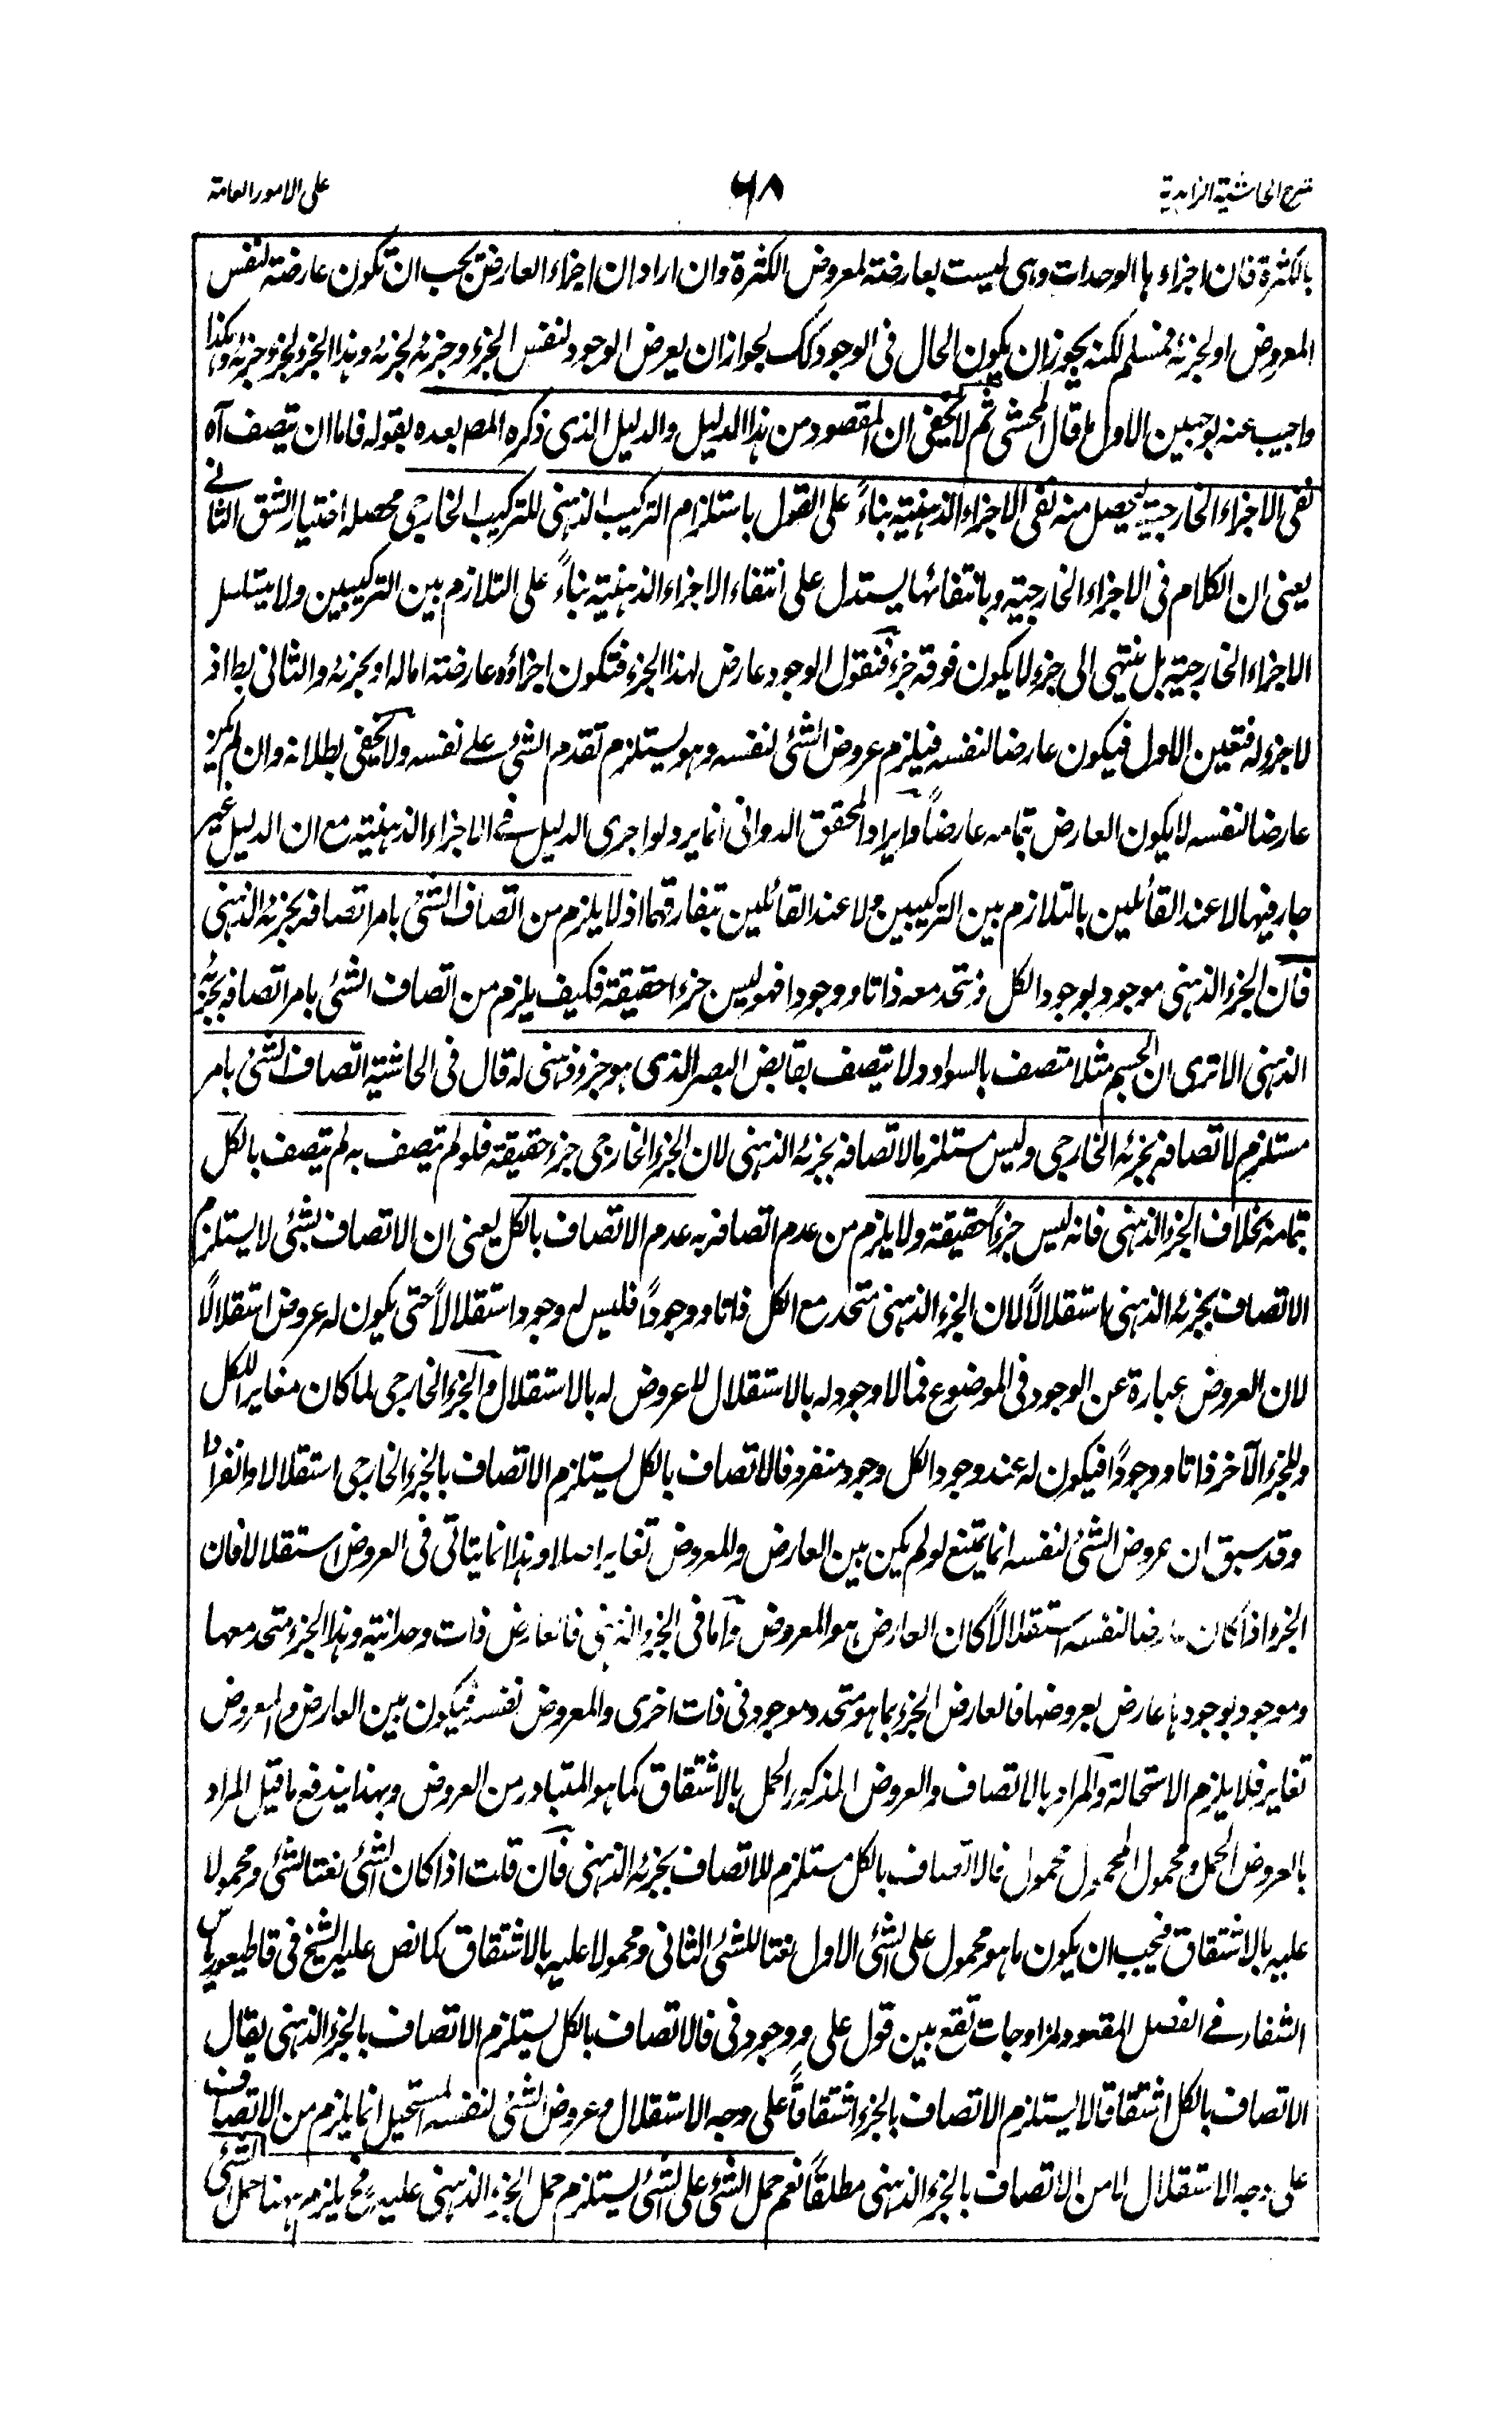 شرح الحاشية الزاهدية
٦٨
على الامور العامة
بالكثرة فان اجزاءها الوحدات وهى ليست بعارضة لمعروض الكثرة وان اراد ان اجزاء العارض يجب ان تكون عارضة لنفس
المعروض او لجزئه فمسلم لكنه يجوز ان يكون الحال فى الوجود كك لجواز ان يعرض الوجود لنفس الجزء وجزئه لجزئه وهذا الجزء لجزء جزئه وهكذا
واجيب عنه بوجهين الاول ما قال المحشى ثم لا يخفى ان المقصود من هذا الدليل والدليل الذى ذكره المصـ بعده بقوله فاما ان يتصف آه
نفى الاجزاء الخارجية ليحصل منه نفى الاجزاء الذهنية بناءً على القول باستلزام التركيب الذهنى للتركيب الخارجى محصله اختيار الشق الثانى
يعنى ان الكلام فى الاجزاء الخارجية وبانتفائها يستدل على انتفاء الاجزاء الذهنية بناءً على التلازم بين التركيبين ولا يتسلسل
الاجزاء الخارجية بل ينتهى الى جزء لا يكون فوقه جزء فنقول الوجود عارض لهذا الجزء فتكون اجزاؤه عارضة اما له او لجزئه والثانى بط اذ
لا جزء له فتعين الاول فيكون عارضا لنفسه فيلزم عروض الشئ لنفسه وهو يستلزم تقدم الشئ على نفسه ولا يخفى بطلانه وان لم يكن
عارضا لنفسه لا يكون العارض بتمامه عارضاً وايراد المحقق الدوانى انما يرد لو اجرى الدليل فى الاجزاء الذهنية مع ان الدليل غير
جار فيها لا عند القائلين بالتلازم بين التركيبين ولا عند القائلين بتفارقهما اذ لا يلزم من اتصاف الشئ بامر اتصافه بجزئه الذهنى
فان الجزء الذهنى موجود بوجود الكل ومتحد معه ذاتا ووجودا فهو ليس جزءا حقيقة فكيف يلزم من اتصاف الشئ بامر اتصافه بجزئه
الذهنى الا ترى ان الجسم مثلا متصف بالسواد ولا يتصف بقابض البصر الذى هو جزء ذهنى له قال فى الحاشية اتصاف الشئ بامر
مستلزم لاتصافه بجزئه الخارجى وليس مستلزما لاتصافه بجزئه الذهنى لان الجزء الخارجى جزء حقيقة فلو لم يتصف به لم يتصف بالكل
بتمامه بخلاف الجزء الذهنى فانه ليس جزءاً حقيقة ولا يلزم من عدم اتصافه به عدم الاتصاف بالكل يعنى ان الاتصاف بشئ لا يستلزم
الاتصاف بجزئه الذهنى استقلالاً لان الجزء الذهنى متحد مع الكل ذاتا ووجوداً فليس له وجود استقلالاً حتى يكون له عروض استقلالاً
لان العروض عبارة عن الوجود فى الموضوع فما لا وجود له بالاستقلال لا عروض له بالاستقلال والجزء الخارجى لما كان مغايرا للكل
وللجزء الآخر ذاتا ووجوداً فيكون له عند وجود الكل وجود منفرد فالاتصاف بالكل يستلزم الاتصاف بالجزء الخارجى استقلالا وانفرادا
وقد سبق ان عروض الشئ لنفسه انما يمتنع لو لم يكن بين العارض والمعروض تغاير اصلا وهذا انما يتاتى فى العروض استقلالا فان
الجزء اذا كان عارضا لنفسه استقلالاً كان العارض هو المعروض واما فى الجزء الذهنى فالعارض ذات وحدانية وهذا الجزء متحد معها
وموجود بوجودها عارض بعروضها فالعارض الجزء بما هو متحد وموجود فى ذات اخرى والمعروض نفسه فيكون بين العارض والمعروض
تغاير فلا يلزم الاستحالة والمراد بالاتصاف والعروض المذكور الحمل بالاشتقاق كما هو المتبادر من العروض وبهذا يندفع ما قيل المراد
بالعروض الحمل ومحمول المحمول محمول فالاتصاف بالكل مستلزم للاتصاف بجزئه الذهنى فان قلت اذا كان الشئ نعتا لشئ ومحمولا
عليه بالاشتقاق فيجب ان يكون ما هو محمول على الشئ الاول نعتا للشئ الثانى ومحمولا عليه بالاشتقاق كما نص عليه الشيخ فى قاطيغورياس
الشفاء فى الفصل المقصود لمزاوجات تقع بين قول على ووجود فى فالاتصاف بالكل يستلزم الاتصاف بالجزء الذهنى يقال
الاتصاف بالكل اشتقاقا لا يستلزم الاتصاف بالجزء اشتقاقاً على وجه الاستقلال وعروض الشئ لنفسه المستحيل انما يلزم من الاتصاف
على وجه الاستقلال لا من الاتصاف بالجزء الذهنى مطلقاً نعم حمل الشئ على الشئ يستلزم حمل الجزء الذهنى عليه وح يلزم ههنا حمل الشئ